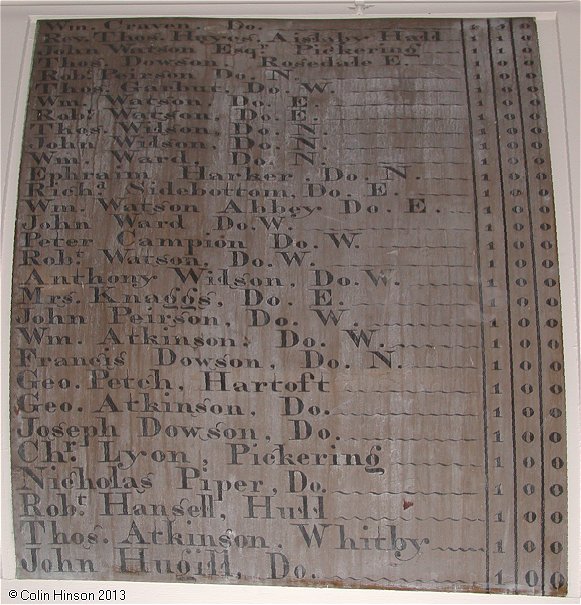 Wm. Craven, Do. 1 1 0
Revd. Thos. Hayes, Aislaby Hall 1 0 0
John Watson Esqr. Pickering 1 0 0
Thos. Dowson, Rosedale E. 1 0 0
Robt. Peirson Do. N. 1 0 0
Thos. Garbut, Do. W. 1 0 0
Wm. Watson Do. E. 1 0 0
Robt. Watson, Do. E. 1 0 0
Thos. Wilson, Do. N. 1 0 0
John Wilson, Do. N. 1 0 0
Wm. Ward, Do. N. 1 0 0
Ephraim Harker, Do. N. 1 0 0
Richd. Sidebottom, Do. E. 1 0 0
Wm. Watson Abbey Do. E. 1 0 0
John Ward Do. W. 1 0 0
Peter Campion Do. W. 1 0 0
Robt. Watson, Do. W. 1 0 0
Anthony Wilson, Do. W. 1 0 0
Mrs. Knaggs, Do. E. 1 0 0
John Peirson, Do. W. 1 0 0
Wm. Atkinson, Do. W. 1 0 0
Francis Dowson, Do. N. 1 0 0
Geo. Petch, Hartoft 1 0 0
Geo. Atkinson, Do. 1 0 0
Joseph Dowson, Do. 1 0 0
Chr. Lyon, Pickering 1 0 0
Nicholas Piper, Do. 1 0 0
Robt. Hansell, Hull 1 0 0
Thos. Atkinson, Whitby 1 0 0
John Hugill, Do. 1 0 0
© Colin Hinson 2013